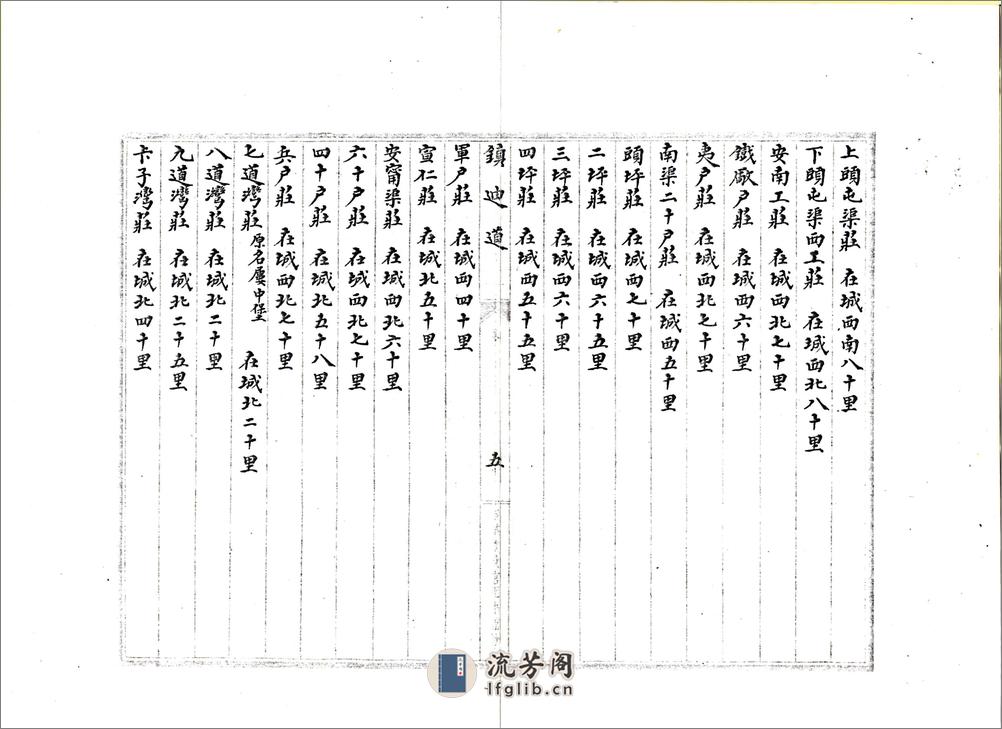 上頭屯渠莊　在城西南八十里
下頭屯渠西工莊　在城西北八十里
安南工莊　在城西北七十里
鐵厰户莊　在城西六十里
夷户莊　在城西北七十里
南渠二十户莊　在城西五十里
頭坪莊　在城西七十里
二坪莊　在城西六十五里
三坪莊　在城西六十里
四坪莊　在城西五十五里
鎮迪道　五
軍户莊　在城西四十里
宣仁莊　在城北五十里
安甯渠莊　在城西北六十里
六十户莊　在城西北七十里
四十户莊　在城北五十八里
兵户莊　在城西北七十里
七道灣莊原名屢中堡　在城北二十里
八道灣莊　在城北二十里
九道灣莊　在城北二十五里
卡子灣莊　在城北四十里
流芳阁
lfglib.cn